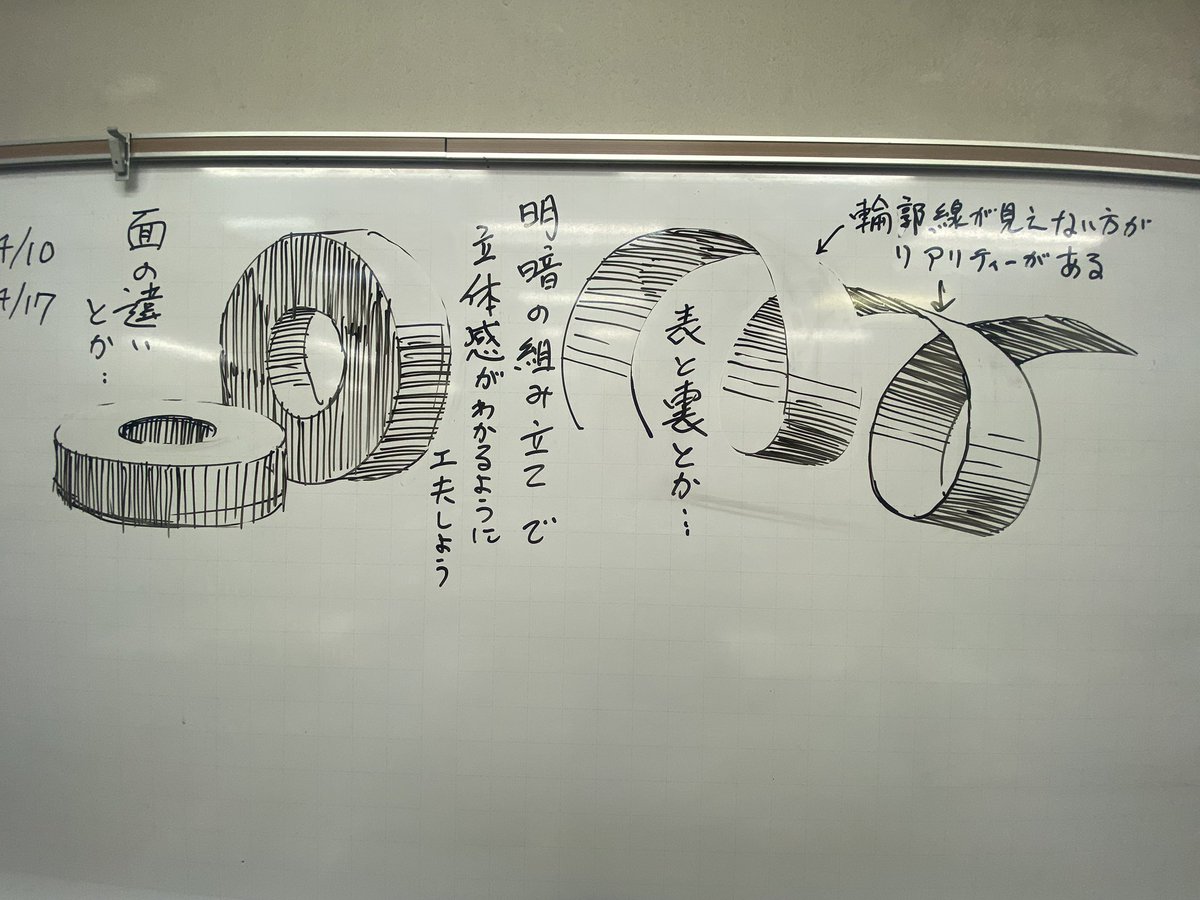 4/10
4/17
面の違い
とか…
明暗の組み立てで
立体感がわかるように
工夫しよう
表と裏とか…
輪郭線が見えない方が
リアリティーがある